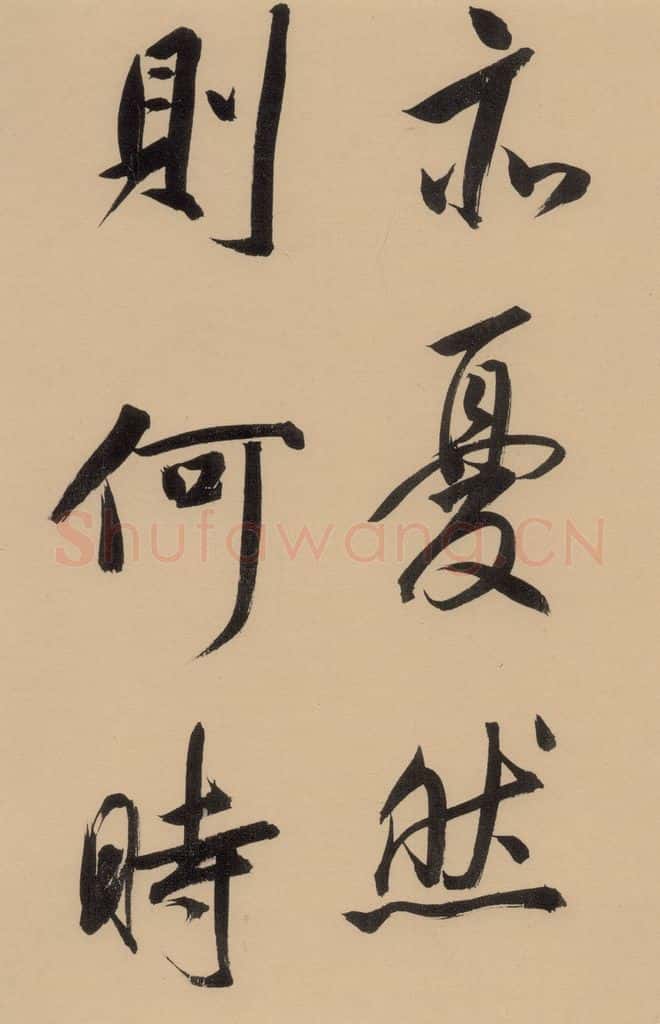 亦憂然
則何時
Shufawang.CN